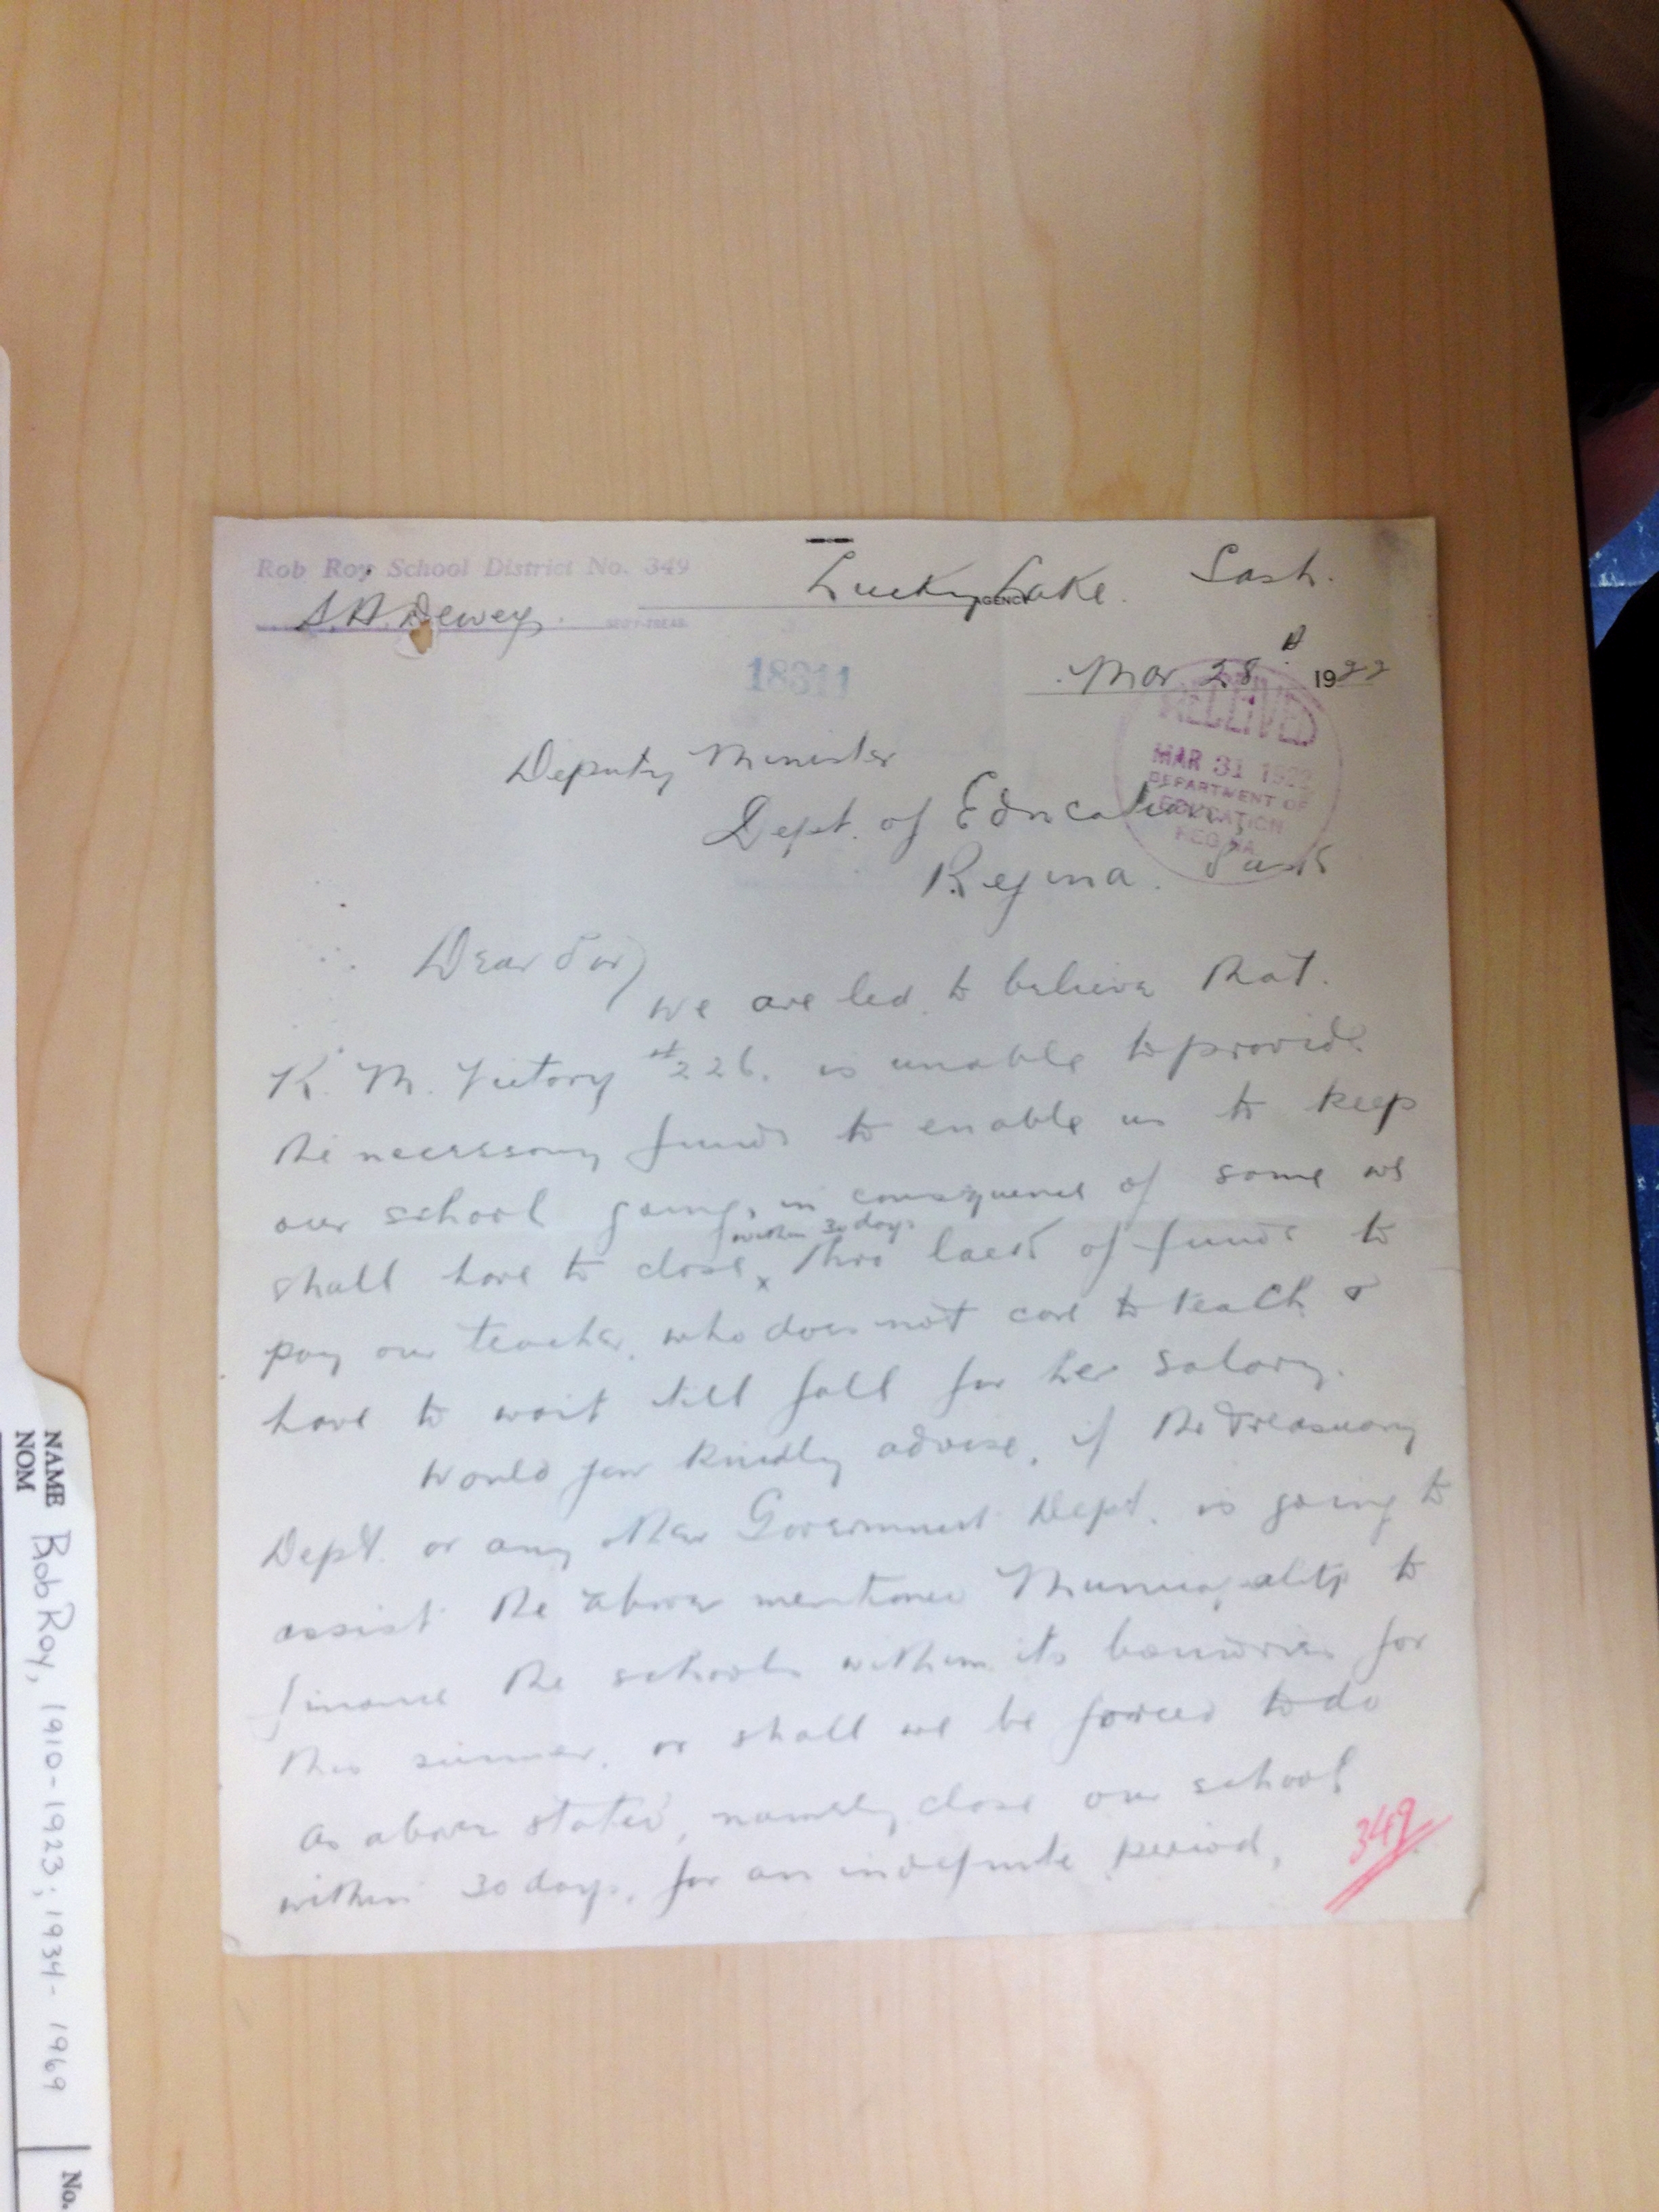 Rob Roy School District No. 349
S.A. Dewey.
SEC'Y-TREAS.
Lucky Lake. Sask.
AGENCY
18311
Mar 28 1922
RECEIVED
MAR 31 1922
DEPARTMENT OF
EDUCATION
REGINA
Deputy Minister
Dept. of Education,
Regina. Sask
Dear Sir)
We are led to believe that.
R. M. Victory #226. is unable to provide
the necessary funds to enable us to keep
our school going, in consequence of same we
within 30 days
shall have to close x thro lack of funds to
pay our teacher, who does not care to teach &
have to wait till fall for her salary.
Would you kindly advise, if the Treasuary
Dept. or any other Government Dept. is going to
assist the above mentioned Municipality to
finance the schools within its boundries for
this summer, or shall we be forced to do
as above stated, namely close our school
within 30 days, for an indefinite period,
349
NAME
NOM
Rob Roy, 1910-1923; 1934-1969
No.